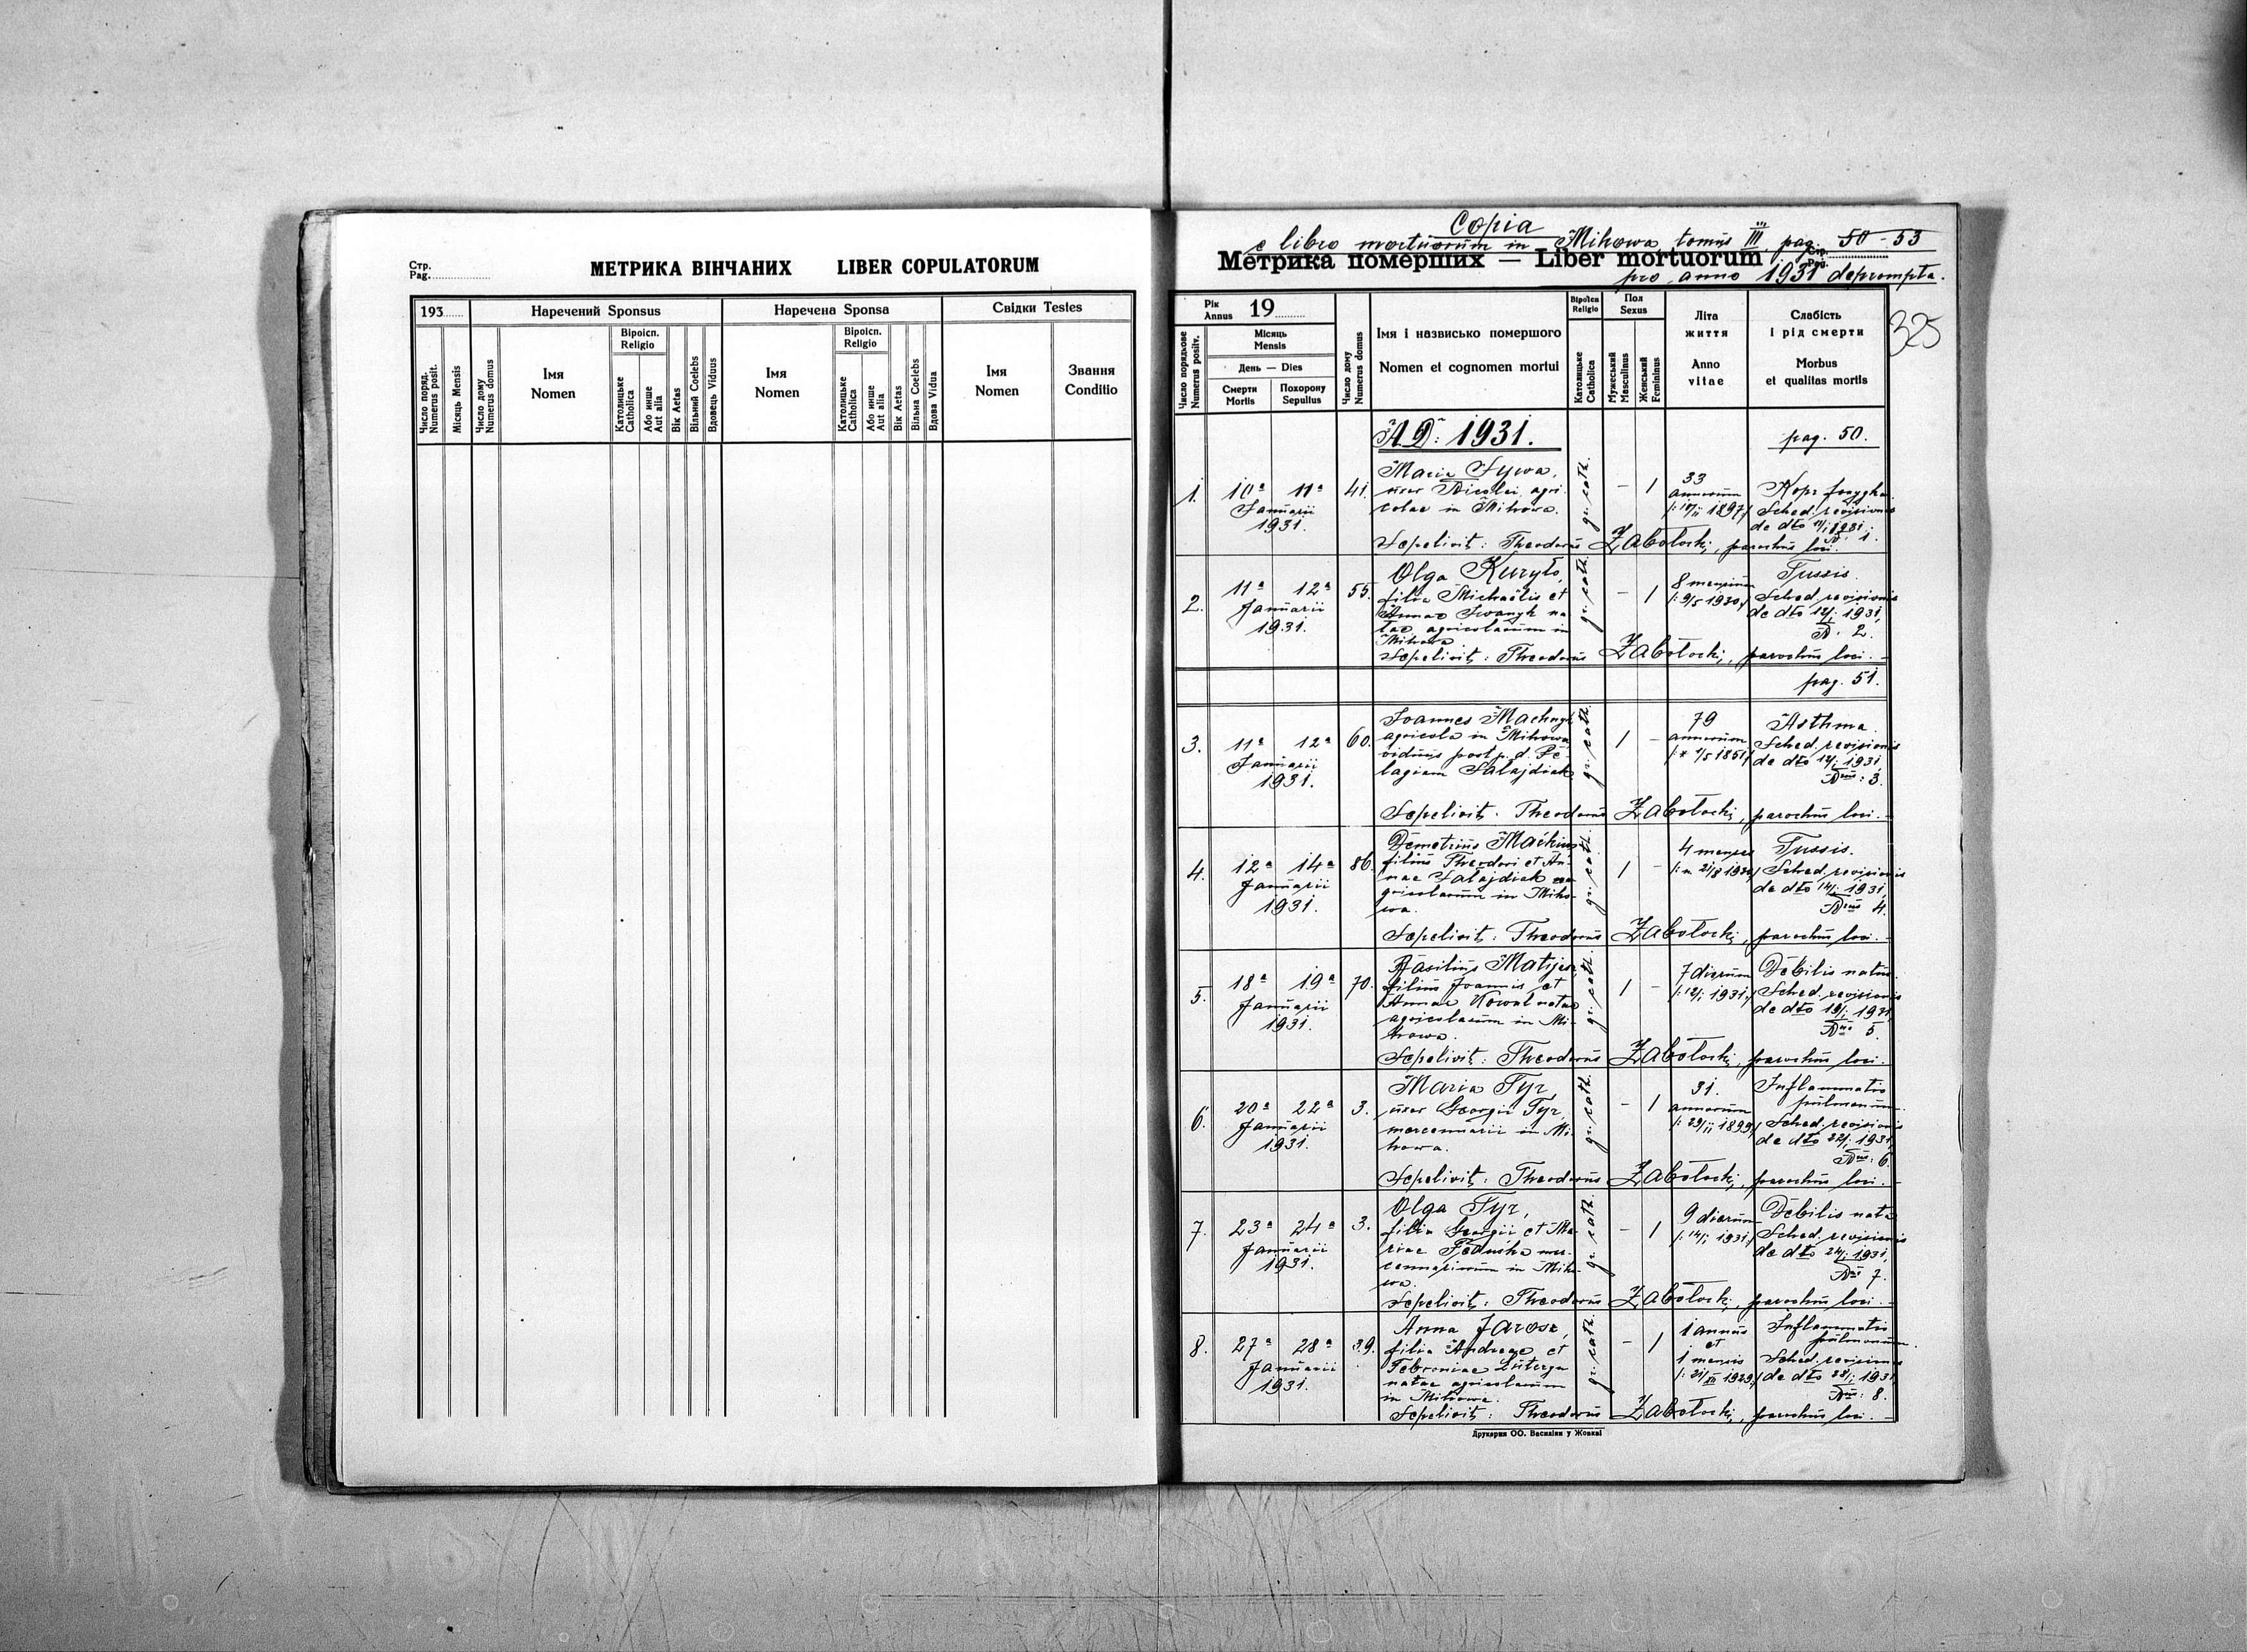 Стр.
Pag.
МЕТРИКА ВІНЧАНИХ LIBER COPULATORUM
193 Наречений Sponsus Наречена Sponsa Свідки Testes
Число поряд.
Numerus posit.
Місяць Mensis
Число дому
Numerus domus
Імя
Nomen
Віроісп.
Religio
Католицьке
Catholica
Або инше
Aut alia
Вік Aetas
Вільний Coelebs
Вдовець Viduus
Імя
Nomen
Віроісп.
Religio
Католицьке
Catholica
Або инше
Aut alia
Вік Aetas
Вільна Coelebs
Вдова Vidua
Імя
Nomen
Звання
Conditio
Copia
e libro mortuorum in Mihowa, tomus III, pag. 50-53
Метрика померших — Liber mortuorum Стр. Pag.
pro anno 1931 deprompta.
325
Рік
Annus 19
Число порядкове
Numerus positv.
Місяць
Mensis
День — Dies
Смерти
Mortis
Похорону
Sepultus
Число дому
Numerus domus
Імя і назвисько помершого
Nomen et cognomen mortui
Віроісп
Religio
Католицьке
Catholica
Пол
Sexus
Мужеський
Masculinus
Женський
Femininus
Літа
життя
Anno
vitae
Слабість
і рід смерти
Morbus
et qualitas mortis
A.D: 1931. pag. 50.
1. 10ª 11ª
Januarii
1931.
41.
Maria
uxor Nicolai, agri-
colae in Mihowa.
gr. cath. - 1
33
annorum
1897
Sched. revisionis
de dto 11/I 1931.
N: 1.
Sepelivit: Theodorus Zabołocki, parochus loci.
2. 11ª 12ª
Januarii
1931.
55.
Olga Kuryło,
filia Michaëlis et
Annae na-
tae, agricolarum in
Mihowa
gr. cath. - 1
8 mensium
9/5 1930
Tussis.
Sched. revisionis
de dto 12/I 1931,
N: 2.
Sepelivit: Theodorus Zabołocki, parochus loci.-
pag. 51.
3. 11ª 12ª
Januarii
1931.
60.
Joannes
agricola in Mihowa,
viduus post p. d. Pe-
lagiam Sałajdiak
gr. cath. 1 -
79
annorum
1851
Asthma.
Sched. revisionis
de dto 1931,
Nus: 3.
Sepelivit: Theodorus Zabołocki, parochus loci.-
4. 12ª 14ª
Januarii
1931.
86.
Demetrius
filius Theodori et An-
nae Sałajdiak a-
gricolarum in Miho-
wa.
gr. cath. 1 -
4 menses
21/8
Tussis.
Sched. revisionis
de dto 14/I 1931,
Nus 4.
Sepelivit: Theodorus Zabołocki, parochus loci.-
5. 18ª 19ª
Januarii
1931.
70.
Basilius
filius Joannis et
Annae Kowal natae
agricolarum in Mi-
howa.
gr. cath. 1 -
7 dierum
12/I 1931
Debilis natus.
Sched. revisionis
de dto 19/I 1931,
Nus 5.
Sepelivit: Theodorus Zabołocki, parochus loci.-
6. 20ª 22ª
Januarii
1931.
3.
Maria Tyr,
uxor Georgii Tyr,
mercennarii in Mi-
howa.
gr. cath. - 1
31.
annorum
1899
Inflammatio
pulmonum.
Sched. revisionis
de dto 22/I 1931,
Nus: 6.
Sepelivit: Theodorus Zabołocki, parochus loci.-
7. 23ª 24ª
Januarii
1931.
3.
Olga Tyr,
filia Georgii et Ma-
riae mer-
cennariorum in Miho-
wa.
gr. cath. - 1
9 dierum
14/I 1931
Debilis nata
Sched. revisionis
de dto 24/I 1931,
Nus 7.
Sepelivit: Theodorus Zabołocki, parochus loci.-
8. 27ª 28ª
Januarii
1931.
39.
Anna Jarosz,
filia Andreae et
Febroniae
natae agricolarum
in Mihowa.
gr. cath. - 1
1 annus
et
1 mensis
1929
Inflammatio
pulmonum.
Sched. revisionis
de dto 28/I 1931,
Nus: 8.
Sepelivit: Theodorus Zabołocki, parochus loci.-
Друкарня ОО. Василіян у Жовкві